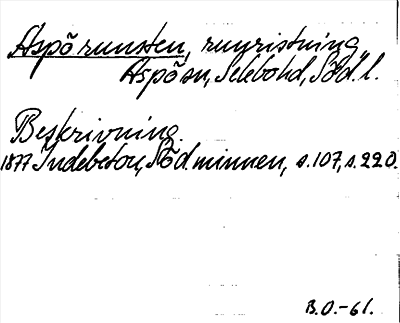 Aspö runsten, runristning
Aspö sn, Selebo hd, Söd. l.
Beskrivning.
1877 Indebetou, Söd. minnen, s. 107, s. 220.
B.O.-61.